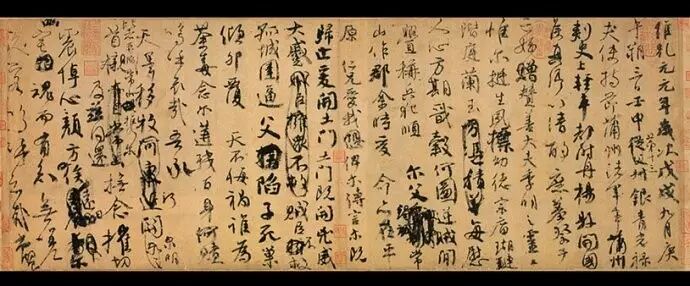 維乾元元年歲次戊戌九月庚
午朔三日壬申第十三叔銀青光祿
夫使持節蒲州諸軍事蒲州
刺史上輕車都尉丹楊縣開國
侯真卿以清酌庶羞祭于
亡姪贈贊善大夫季明之靈曰
惟爾挺生夙標幼德宗廟瑚璉
階庭蘭玉每慰
人心方期戩穀何圖逆賊間
釁稱兵犯順爾父竭誠常
山作郡余時受命亦在平
原仁兄愛我俾爾傳言爾既
歸止爰開土門土門既開凶威
大蹙賊臣不救
孤城圍逼父陷子死巢
傾卵覆天不悔禍誰為
荼毒念爾遘殘百身何贖
嗚呼哀哉吾承
天澤移牧河關泉明
比者再陷常山攜爾
首櫬及茲同還撫念摧切
震悼心顏方俟
爾幽宅魂而有知無嗟
久客嗚呼哀哉尚饗